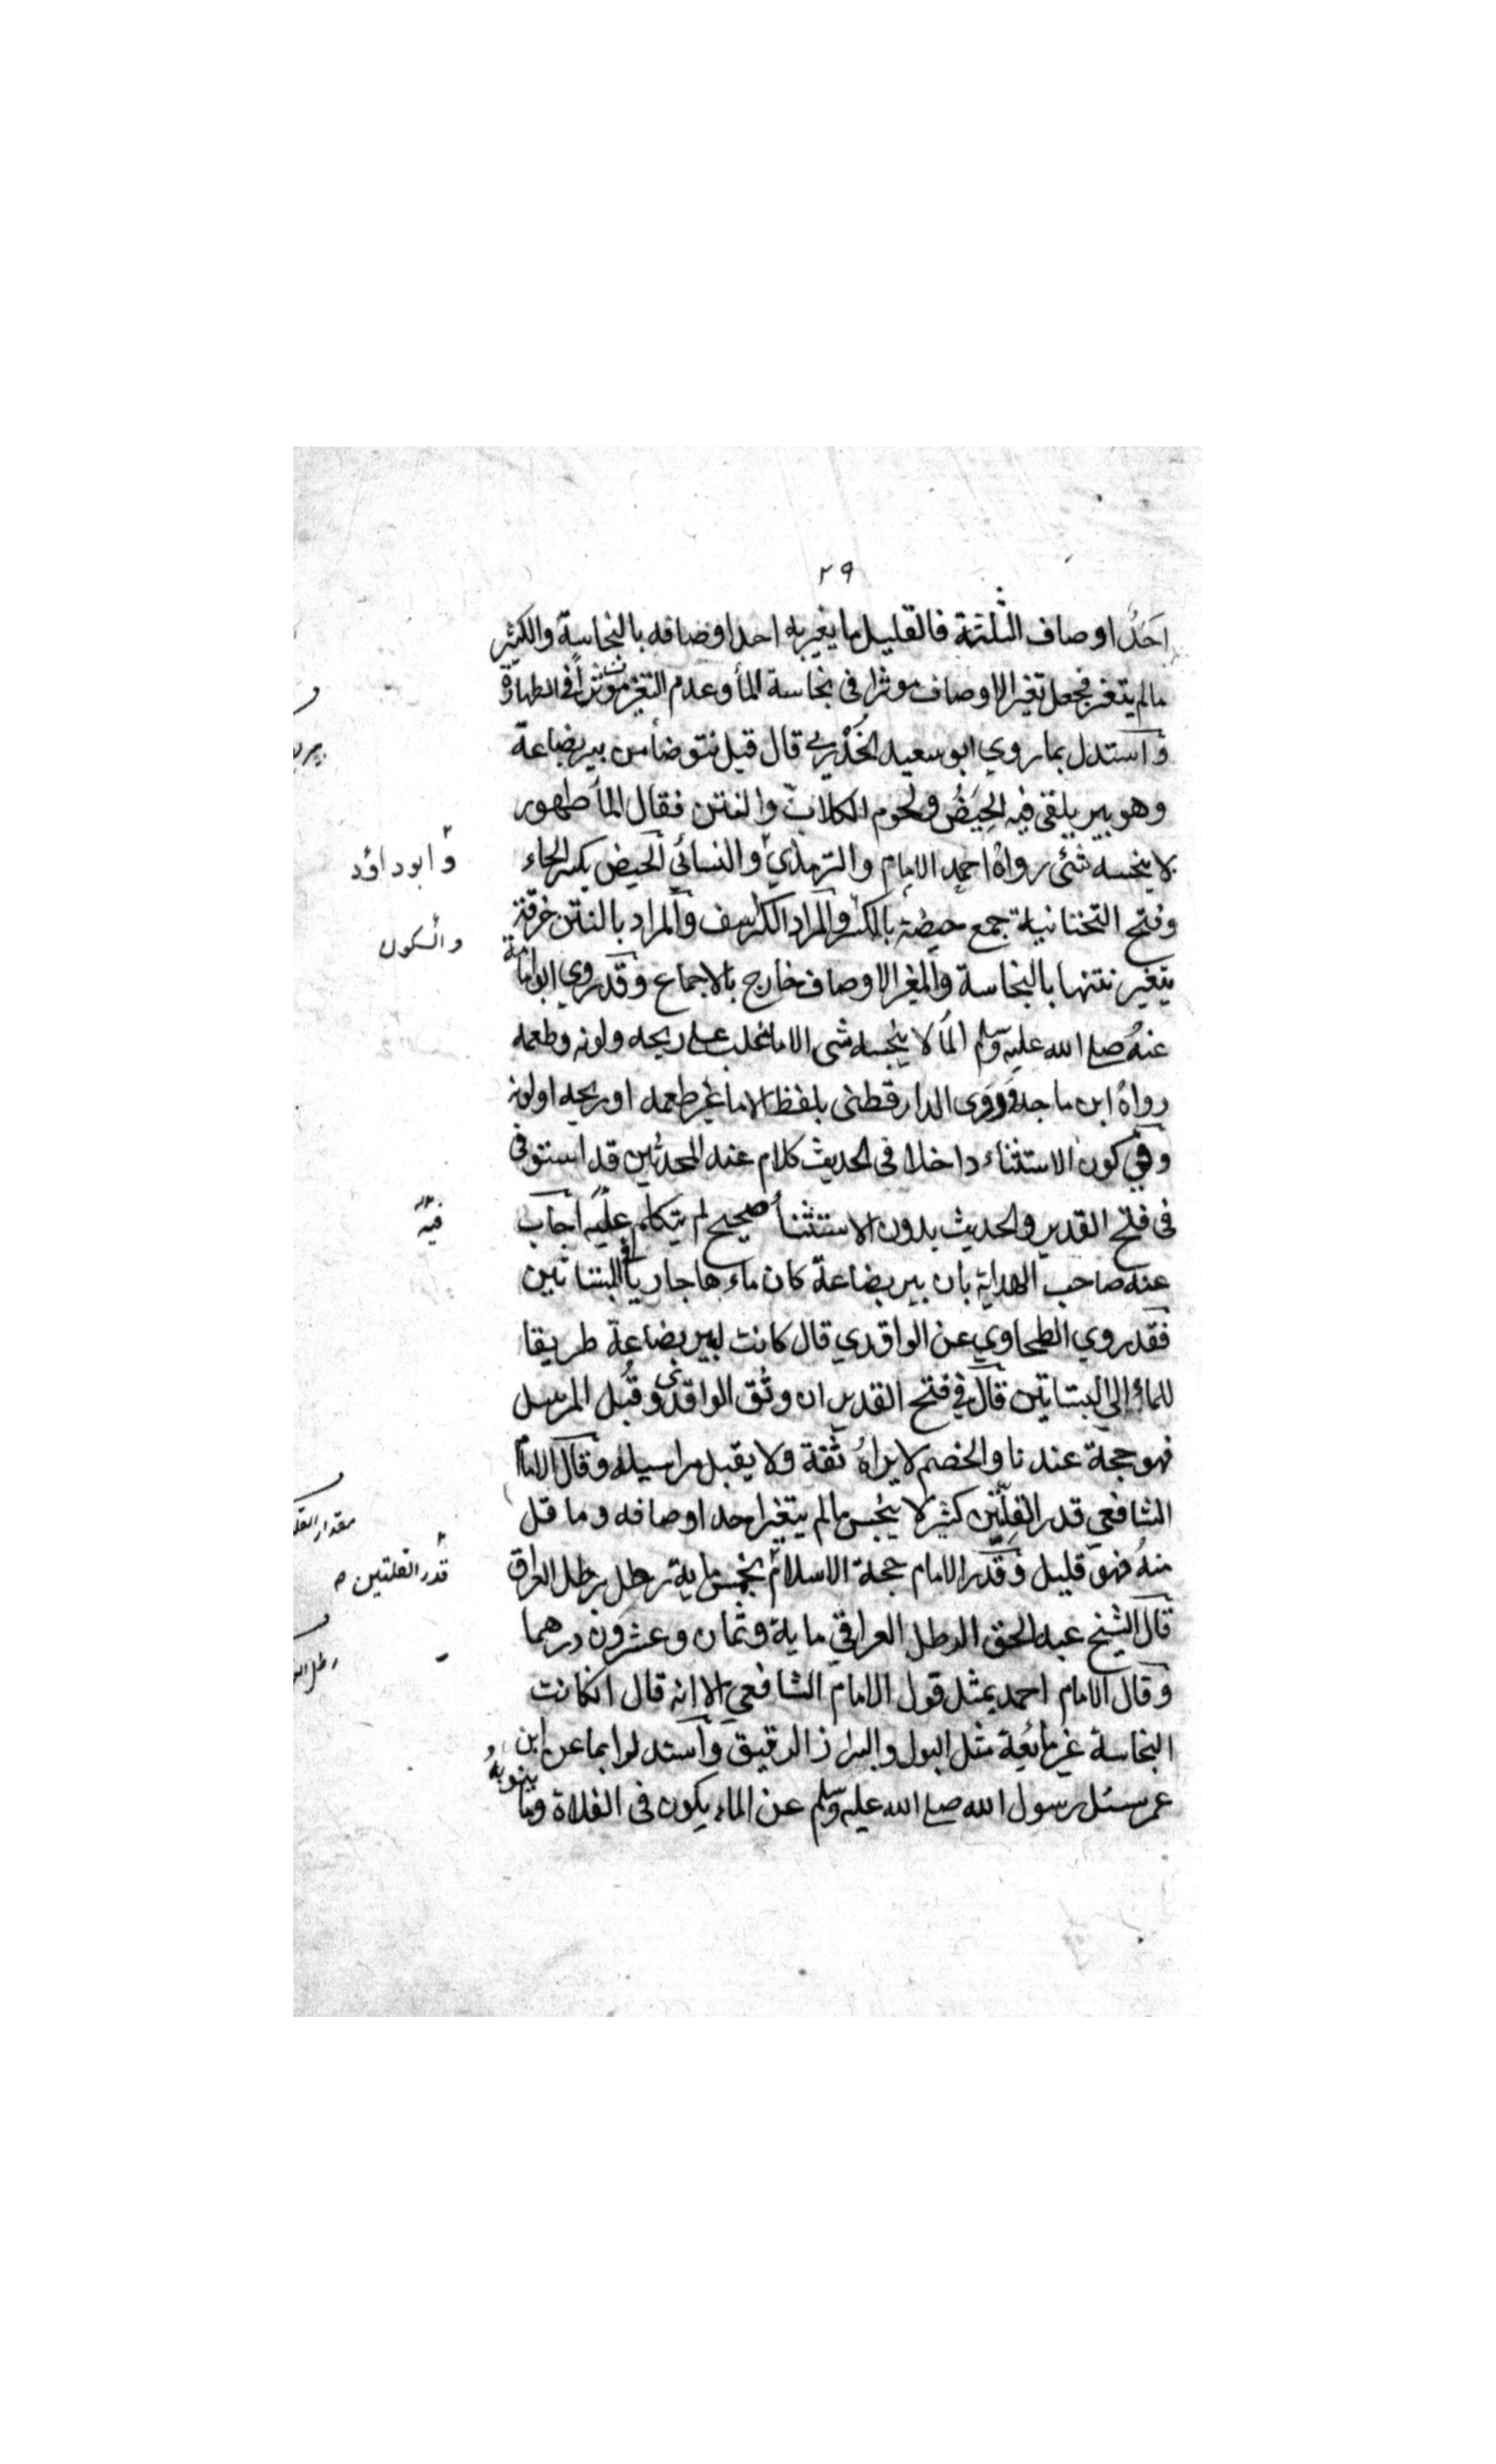 ٢٩
احَدُ اوصاف الثلثة فالقليل ما يغير به احد اوصافه بالنجاسة والكثير
مالم يتغير فجعل تغير الاوصاف موثرا فى نجاسة المأ وعدم التغير موثرا فى الطهارة
واستدل بما روي ابو سعيد الخُدْري قال قيل نتوضأ من بير بضاعة
وهو بير يلقى فيه الحِيَضُ ولحوم الكلاب والنتن فقال المأ طهور
لا ينجسه شئى رواهُ احمد الامام والترمذي والنسائي الحيض بكسر الحاء
وفتح التختانية جمع حيضة بالكسر والمراد الكراسف والمراد بالنتن خرقة
يتغير نتنها بالنجاسة والمغير الاوصاف خارج بالاجماع وقد روي ابو امامة
عنهُ صلى الله عليه وسلم المأ لا ينجسه شى الا ما غلب على ريحه ولونه وطعمه
رواهُ ابن ماجه وروى الدارقطنى بلفظ الا ما غير طعمه او ريحه او لونه
وفي كون الاستثناء داخلا فى الحديث كلام عند المحدثين قد استوفى
فى فتح القدير والحديث بدون الاستثنأ صحيح لم يتكلم عليه اجاب
عنه صاحب الهداية بان بير بضاعة كان ماءها جاريا فى البساتين
فقد روي الطحاوي عن الواقدي قال كانت لبير بضاعة طريقا
للماء إلى البساتين قال في فتح القدير ان وثق الواقدى وقُبل المرسل
فهو حجة عندنا والخصم لا يراهُ ثقة ولا يقبل مراسيله وقال الامام
الشافعي قدر القلتين كثير لا ينجس مالم يتغير احد اوصافه وما قل
منهُ فهو قليل وقدر الامام حجة الاسلام بخمس ماية رطل برطل العراق
قال الشيخ عبد الحق الرطل العراقي ماية وثمان وعشرون درهما
وقال الامام احمد بمثل قول الامام الشافعي الا انه قال انكانت
النجاسة غير مائعة مثل البول والبراز الرقيق واستدلوا بما عن ابن
عمر سئل رسول الله صلى الله عليه وسلم عن الماء يكون فى الفلاة وما ينوبه
وابو داؤد
والسكون
فيه
قدر القلتين